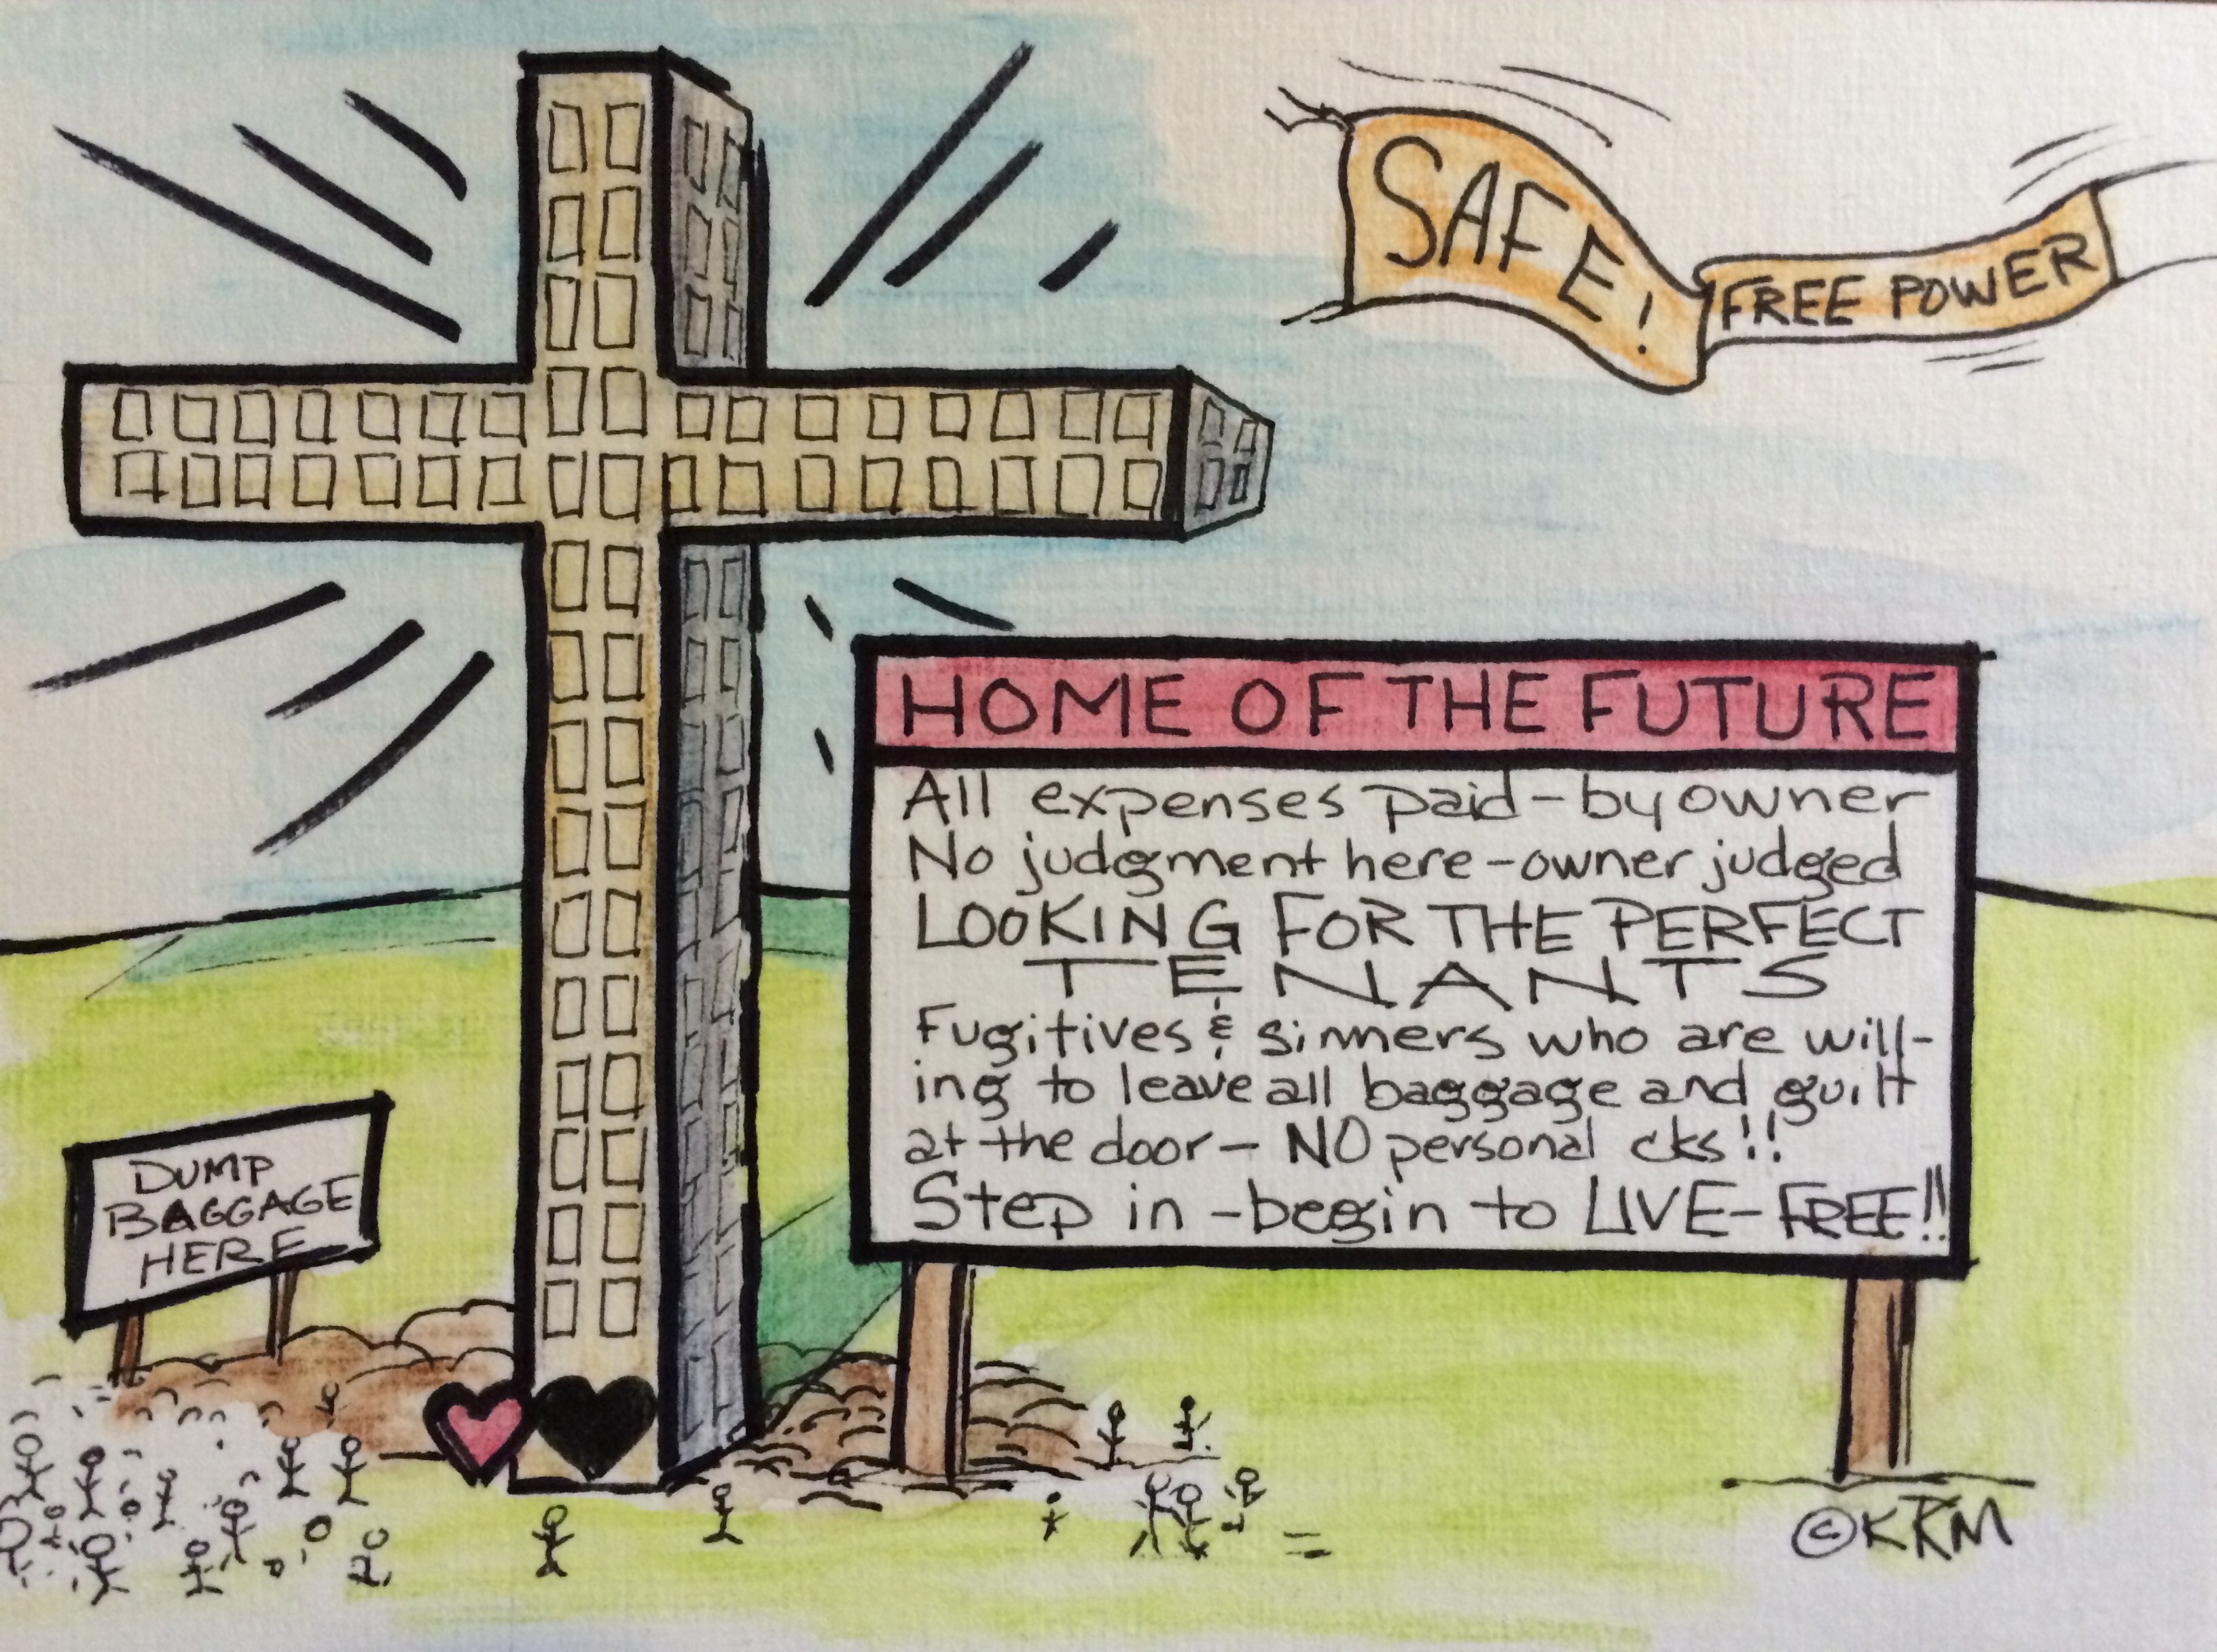 SAFE!
FREE POWER
HOME OF THE FUTURE
All expenses paid - by owner
No judgment here - owner judged
LOOKING FOR THE PERFECT
TENANTS
Fugitives & sinners who are will-
ing to leave all baggage and guilt
at the door - NO personal cks!!
Step in - begin to LIVE - FREE!!
DUMP
BAGGAGE
HERE
©KRM